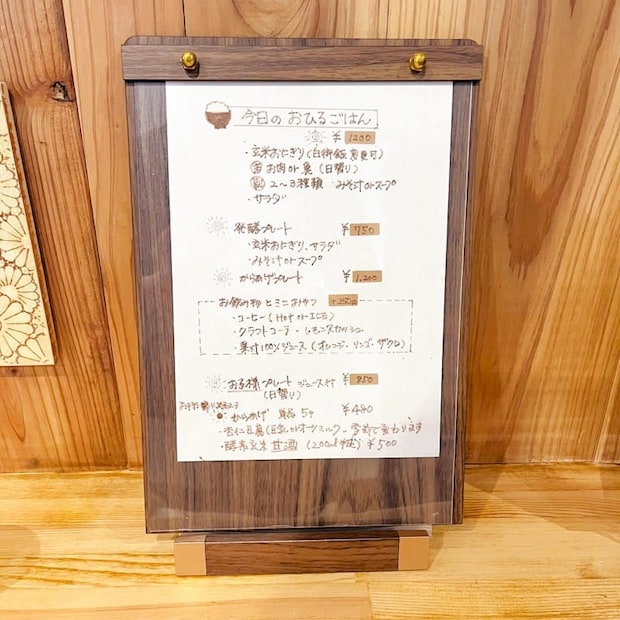 今日のおひるごはん
¥ 1200
・玄米おにぎり(白御飯変更可)
主 お肉or魚(日替り)
副 2〜3種類 ・みそ汁orスープ
・サラダ
発酵プレート ¥ 750
・玄米おにぎり、サラダ
・みそ汁orスープ
からあげプレート ¥ 1,200
お飲み物とミニおやつ +250
・コーヒー(Hot or ICE)
・クラフトコーラ・レモンスカッシュ
・果汁100%ジュース(オレンジ・リンゴ・ザクロ)
お子様プレート ジュース付 ¥ 850
(日替り)
からあげ 単品 5ヶ ¥480
・杏仁豆腐(豆乳orオーツミルク 季節で変わります
・酵素玄米甘酒(200ml) ¥500